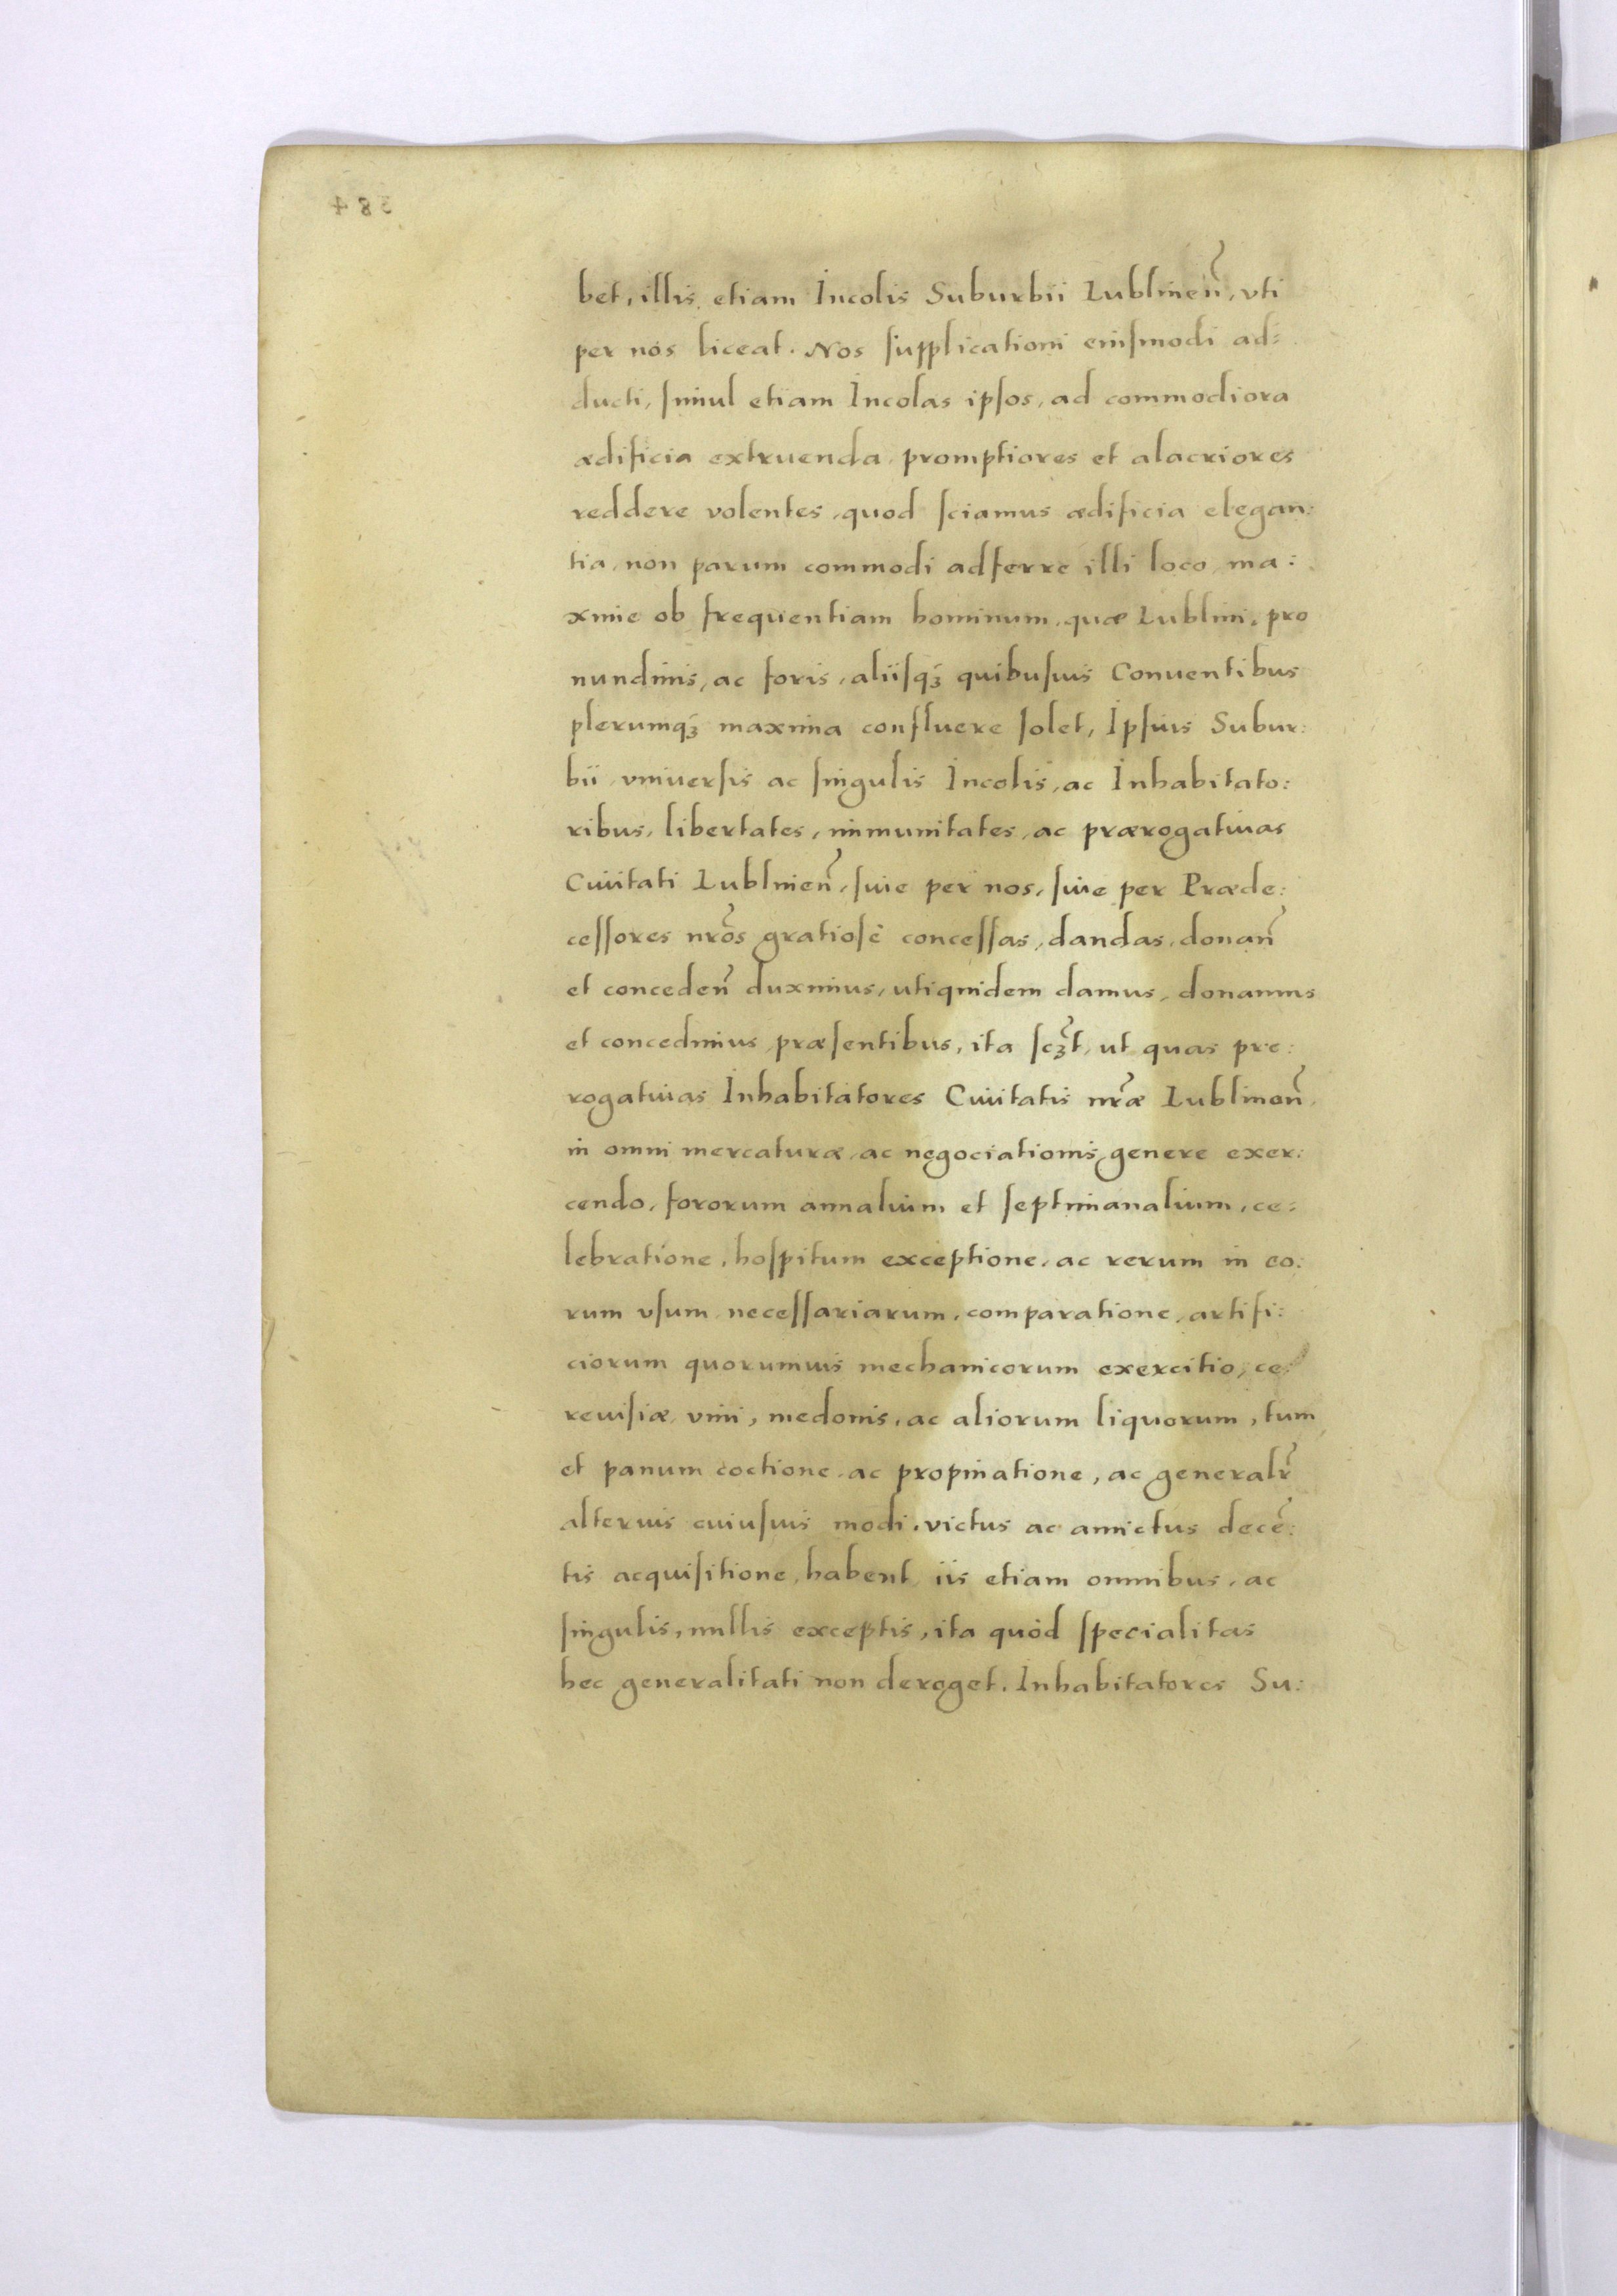 bet, illis etiam Incolis Suburbii Lublineñ, vti
per nos liceat. Nos ſupplicationi eiuſmodi ad:
ducti, ſimul etiam Incolas ipſos, ad commodiora
ædificia extruenda promptiores et alacriores
reddere volentes, quod ſciamus ædificia elegan:
tia, non parum commodi adferre illi loco, ma:
xime ob frequentiam hominum, quæ Lublini, pro
nundinis, ac foris, aliiſqꝫ quibuſuis Conuentibus
plerumqꝫ maxima confluere ſolet, Ipſius Subur:
bii vniuerſis ac ſingulis Incolis, ac Inhabitato:
ribus, libertates, immunitates, ac prærogatiuas
Ciuitati Lublineñ, ſiue per nos, ſiue per Præde:
ceſſores nr̃os gratioſè conceſſas, dandas, donañ
et concedeñ duximus, utiquidem damus, donamus
et concedimus præſentibus, ita ſcꝫt, ut quas pre:
rogatiuas Inhabitatores Ciuitatis nr̃æ Lublineñ,
in omni mercaturæ, ac negociationis genere exer:
cendo, fororum annalium et ſeptimanalium, ce:
lebratione, hoſpitum exceptione, ac rerum in eo:
rum vſum neceſſariarum, comparatione, artifi:
ciorum quorumuis mechanicorum exercitio, ce:
reuiſiæ vini, medonis, ac aliorum liquorum, tum
et panum coctione ac propinatione, ac generalr̃
alterius cuiuſuis modi, victus ac amictus decẽ:
tis acquiſitione, habent iis etiam omnibus, ac
ſingulis, nullis exceptis, ita quòd ſpecialitas
hec generalitati non deroget. Inhabitatores Su: